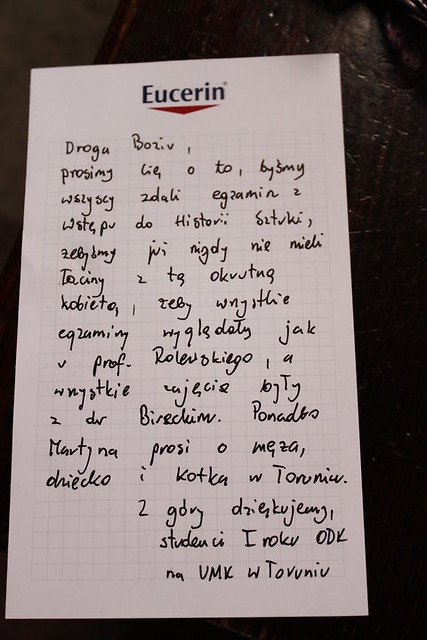 Eucerin
Droga Boziu,
prosimy Cię o to, byśmy
wszyscy zdali egzamin z
wstępu do Historii Sztuki,
żebyśmy już nigdy nie mieli
Łaciny z tą okrutną
kobietą, żeby wszystkie
egzaminy wyglądały jak
u prof. Rolewskiego, a
wszystkie zajęcia były
z dr Bireckim. Ponadto
Martyna prosi o męża,
dziecko i kotka w Toruniu.
Z góry dziękujemy,
studenci I roku ODK
na UMK w Toruniu